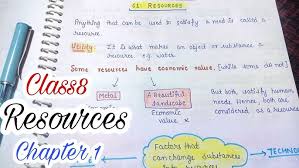 01: RESOURCES
Anything that can be used to satisfy a need is called a
resource.
Utility: It is what makes an object or substance a
resource. e.g. water.
Some resources have economic value.
Metal
A Beautiful
landscape
Economic
value x
But, both satisfy human
needs. Hence, both are
considered as a resource.
Factors that
can change substances
Class8
Resources
Chapter 1